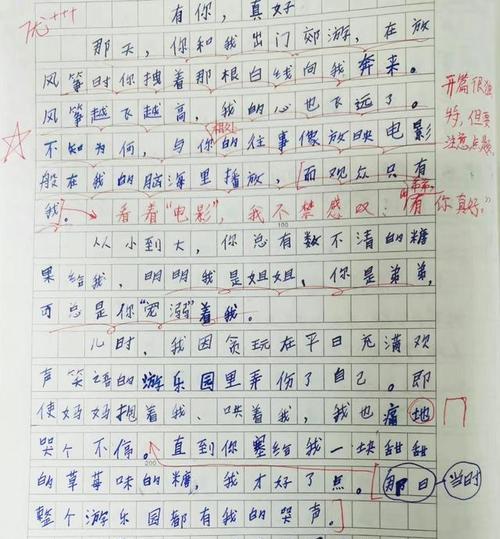 有你，真好
优+++
那天，你和我出门郊游，在放
风筝时你拽着那根白线向我奔来。
风筝越飞越高，我的心也飞远了。
开篇很独
特，但要
注意点题
相处
不知为何，与你的往事像放映电影
般在我的脑海里播放，而观众只有
我。看着“电影”，我不禁感叹：“有你真好。”
100
从小到大，你总有数不清的糖
果给我，明明我是姐姐，你是弟弟，
可总是你“宠溺”着我。
儿时，我因贪玩在平日充满欢
声笑语的游乐园里弄伤了自己。即
使妈妈抱着我、哄着我，我也痛地
哭个不停。直到你塞给我一块甜甜
200
的草莓味的糖，我才好了点。那日 当时
整个游乐园都有我的哭声。